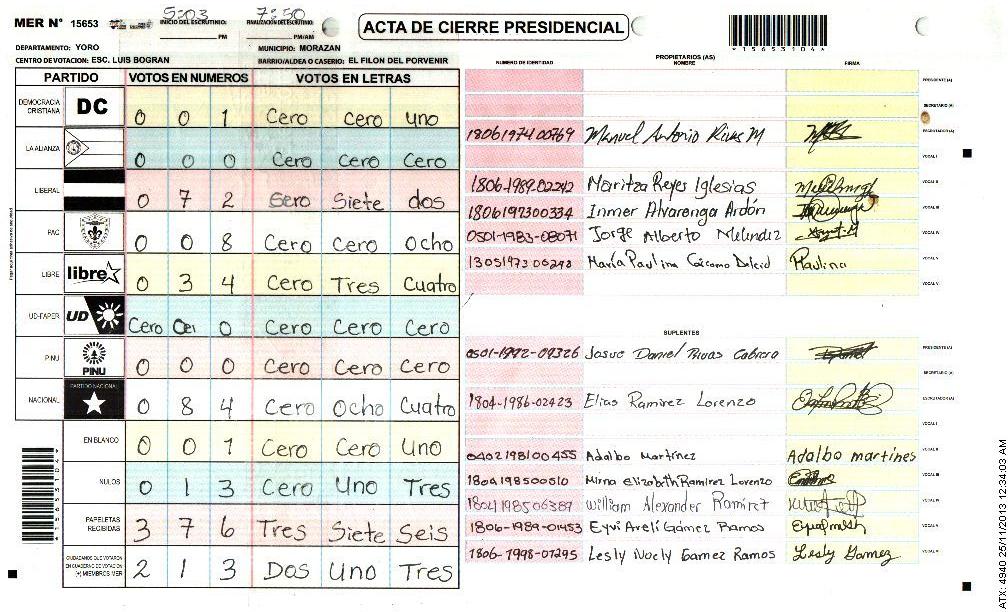 MER N° 15653
5:03
7:50
INICIO DEL ESCRUTINIO:
FINALIZACIÓN DEL ESCRUTINIO:
PM
PM/AM
ACTA DE CIERRE PRESIDENCIAL
*1565310 4*
DEPARTAMENTO: YORO
MUNICIPIO: MORAZAN
CENTRO DE VOTACION: ESC. LUIS BOGRAN
BARRIO/ALDEA O CASERIO: EL FILON DEL PORVENIR
PARTIDO VOTOS EN NUMEROS VOTOS EN LETRAS
DEMOCRACIA CRISTIANA DC 0 0 1 Cero cero uno
LA ALIANZA 0 0 0 Cero Cero Cero
LIBERAL 0 7 2 Sero Siete dos
PAC 0 0 8 Cero Cero Ocho
LIBRE libre 0 3 4 Cero Tres Cuatro
UD-FAPER UD Cero 0 Cero Cero Cero
PINU PINU 0 0 0 Cero Cero Cero
NACIONAL PARTIDO NACIONAL 0 8 4 Cero Ocho Cuatro
EN BLANCO 0 0 1 Cero Cero Uno
NULOS 0 1 3 Cero Uno Tres
PAPELETAS RECIBIDAS 3 7 6 Tres Siete Seis
CIUDADANOS QUE VOTARON EN CUADERNO DE VOTACION (+) MIEMBROS MER 2 1 3 Dos Uno Tres
PROPIETARIOS (AS)
NUMERO DE IDENTIDAD NOMBRE FIRMA
PRESIDENTE (A)
SECRETARIO (A)
1806197400769 Manuel Antonio Rivas M ESCRUTADOR (A)
VOCAL I
1806-1989-02242 Maritza Reyes Iglesias VOCAL II
1806197300334 Inmer Alvarenga Ardón VOCAL III
0501-1983-08071 Jorge Alberto Melendez VOCAL IV
María Paulina Paulina VOCAL V
VOCAL VI
SUPLENTES
0501-1992-09326 Josue Daniel Rivas Cabrera PRESIDENTE (A)
SECRETARIO (A)
1804-1986-02423 Elias Ramirez Lorenzo ESCRUTADOR (A)
VOCAL I
0402198100455 Adalbo Martínez Adalbo martines VOCAL II
Mirna Elizabeth Ramirez Lorenzo VOCAL III
William Alexander Ramírez VOCAL IV
1806-1989-01453 Eyvi Arelí Gámez Ramos VOCAL V
1806-1998-01295 Lesly Noely Gamez Ramos Lesly Gomez VOCAL VI
ATX: 4940 25/11/2013 12:34:03 AM